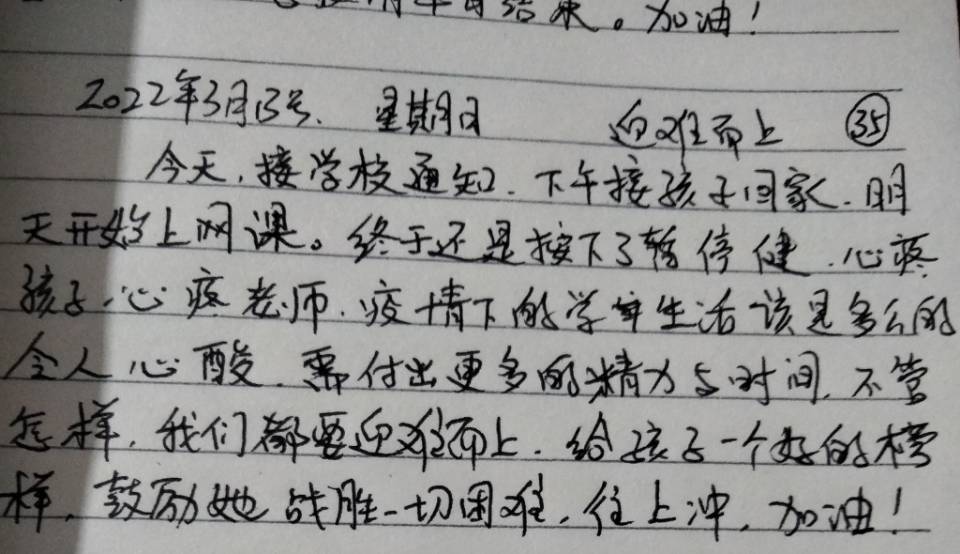 结束。加油！
2022年3月13号. 星期日 迎难而上 ㉟
今天,接学校通知.下午接孩子回家.明
天开始上网课。终于还是按下了暂停健.心疼
孩子.心疼老师.疫情下的学年生活该是多么的
令人心酸.需付出更多的精力与时间.不管
怎样.我们都要迎难而上.给孩子一个好的榜
样.鼓励她战胜一切困难.往上冲.加油！